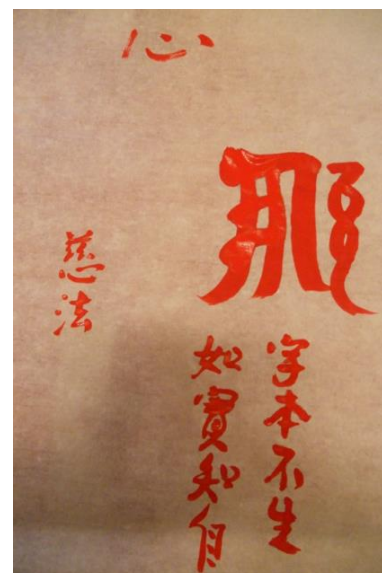 字本不生
如實知自
心
慈法